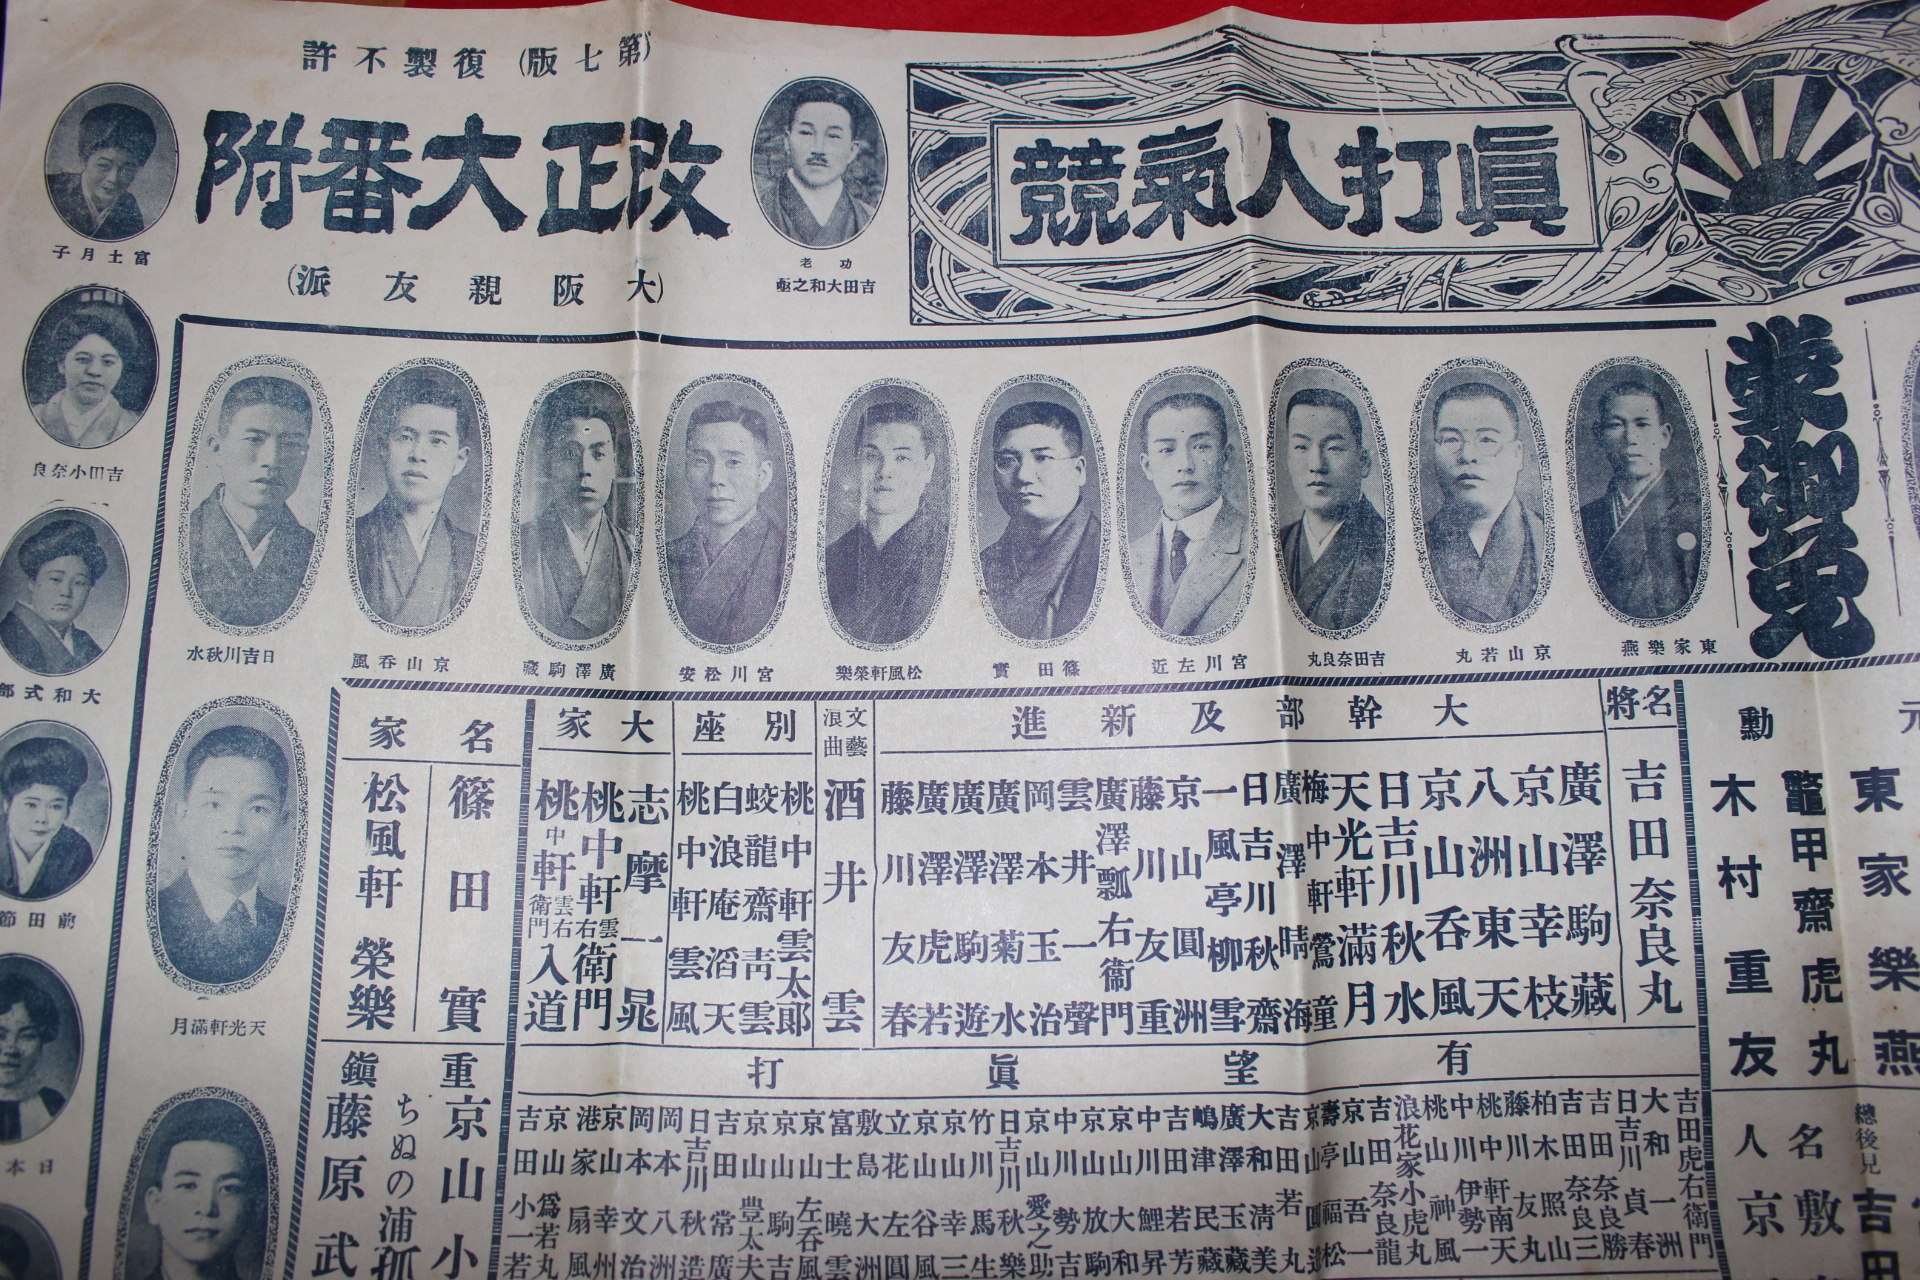 眞打人氣競
(第七版) 復製不許
改正大番附
(大阪親友派)
蒙御免
功老
吉田大和之亟
富士月子
吉田小奈良
大和式部
前田節
日本
東家樂燕
京山若丸
吉田奈良丸
宮川左近
篠田實
松風軒榮樂
宮川松安
廣澤駒藏
京山呑風
日吉川秋水
天光軒滿月
元
東家樂燕
勳
鼈甲齋虎丸
木村重友
名將
吉田奈良丸
大幹部及新進
廣澤駒藏
京山幸枝
八洲東天
京山呑風
日吉川秋水
天光軒滿月
梅中軒鶯童
廣澤晴海
日吉川秋齋
一風亭柳雪
京山圓洲
藤川友重
廣澤瓢右衞門
雲井一聲
岡本玉治
廣澤菊水
廣澤駒遊
廣澤虎若
藤川友春
文藝浪曲
酒井雲
別座
桃中軒雲太郎
蛟龍齋靑雲
白浪庵滔天
桃中軒雲風
大家
志摩一晁
桃中軒雲右衞門
桃中軒雲右衞門入道
名家
篠田實
松風軒榮樂
有望眞打
吉田虎右衞門
大和一洲
日吉川貞春
吉田奈良勝
吉田奈良三
柏木照山
藤川友丸
桃中軒南天
中川伊勢一
桃山神風
浪花家小虎丸
吉田奈良龍
京山吾一
壽亭福松
吉田若丸
大和淸美
廣澤玉藏
嶋津民藏
吉田若芳
中川鯉昇
京山大和
京山放駒
中川勢吉
京山愛之助
日吉川秋樂
竹川馬生
京山幸三
京山谷風
立花左圓
敷島大洲
富士曉雲
京山左呑風
京山駒吉
京山豊太夫
吉田常廣
日吉川秋造
岡本八洲
岡本文治
京山幸州
港家扇風
京山爲若丸
吉田小一若
重
鎭
京山小
ちぬの浦孤
藤原武
總後見
吉田
名
人
敷
京